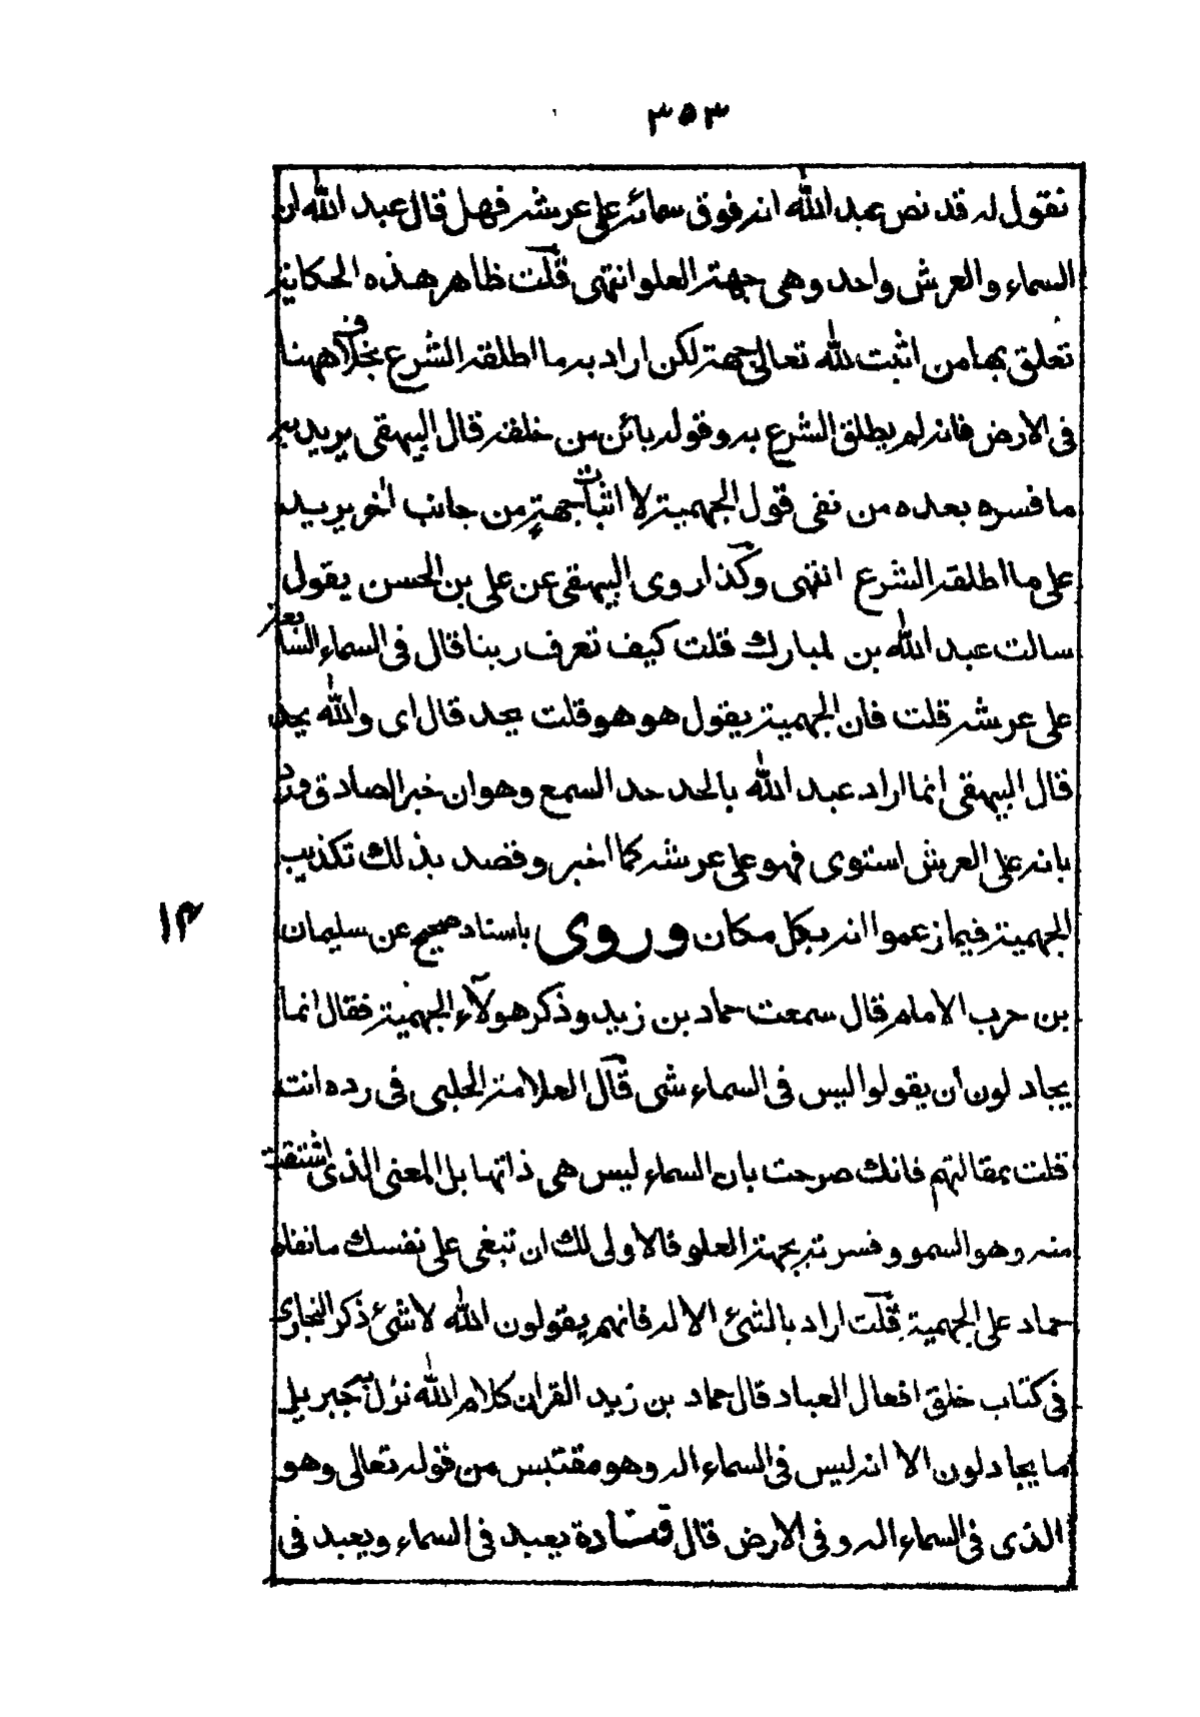 ٣٥٣
نقول له قد نص عبد الله انه فوق سمائه على عرشه فهل قال عبد الله ان
السماء والعرش واحد وهى جهة العلو انتهى قلت ظاهر هذه الحكاية
تعلق بها من اثبت لله تعالى جهة لكن اراد به ما اطلقه الشرع بخلاف ههنا
فى الارض فانه لم يطلق الشرع به وقوله بائن من خلقه قال البيهقى يريد به
ما فسره بعده من نفى قول الجهمية لا اثبات جهة من جانب اخر يريد
على ما اطلقه الشرع انتهى وكذا روى البيهقى عن على بن الحسن يقول
سالت عبد الله بن لمبارك قلت كيف تعرف ربنا قال فى السماء السابعة
على عرشه قلت فان الجهمية يقول هو هو قلت بحد قال اى والله بحد
قال البيهقى انما اراد عبد الله بالحد حد السمع وهو ان خبر الصادق ورد
بانه على العرش استوى فهو على عرشه كما اخبر وقصد بذلك تكذيب
الجهمية فيما زعموا انه بكل مكان وروى باسناد صحيح عن سليمان
١٢
بن حرب الامام قال سمعت حماد بن زيد وذكر هولاء الجهمية فقال انما
يجادلون أن يقولوا ليس فى السماء شى قال العلامة الحلبى فى رده انت
قلت بمقالتهم فانك صرحت بان السماء ليس هى ذاتها بل المعنى الذى اشتقت
منه وهو السمو وفسرته بجهة العلو فالاولى لك ان تبغى على نفسك ما نفاه
حماد على الجهمية قلت اراد بالشئ الاله فانهم يقولون الله لا شئ ذكر البخارى
فى كتاب خلق افعال العباد قال حماد بن زيد القران كلام الله نزل به جبريل
ما يجادلون الا انه ليس فى السماء اله وهو مقتبس من قوله تعالى وهو
الذى فى السماء اله وفى الارض قال قتادة يعبد فى السماء ويعبد فى